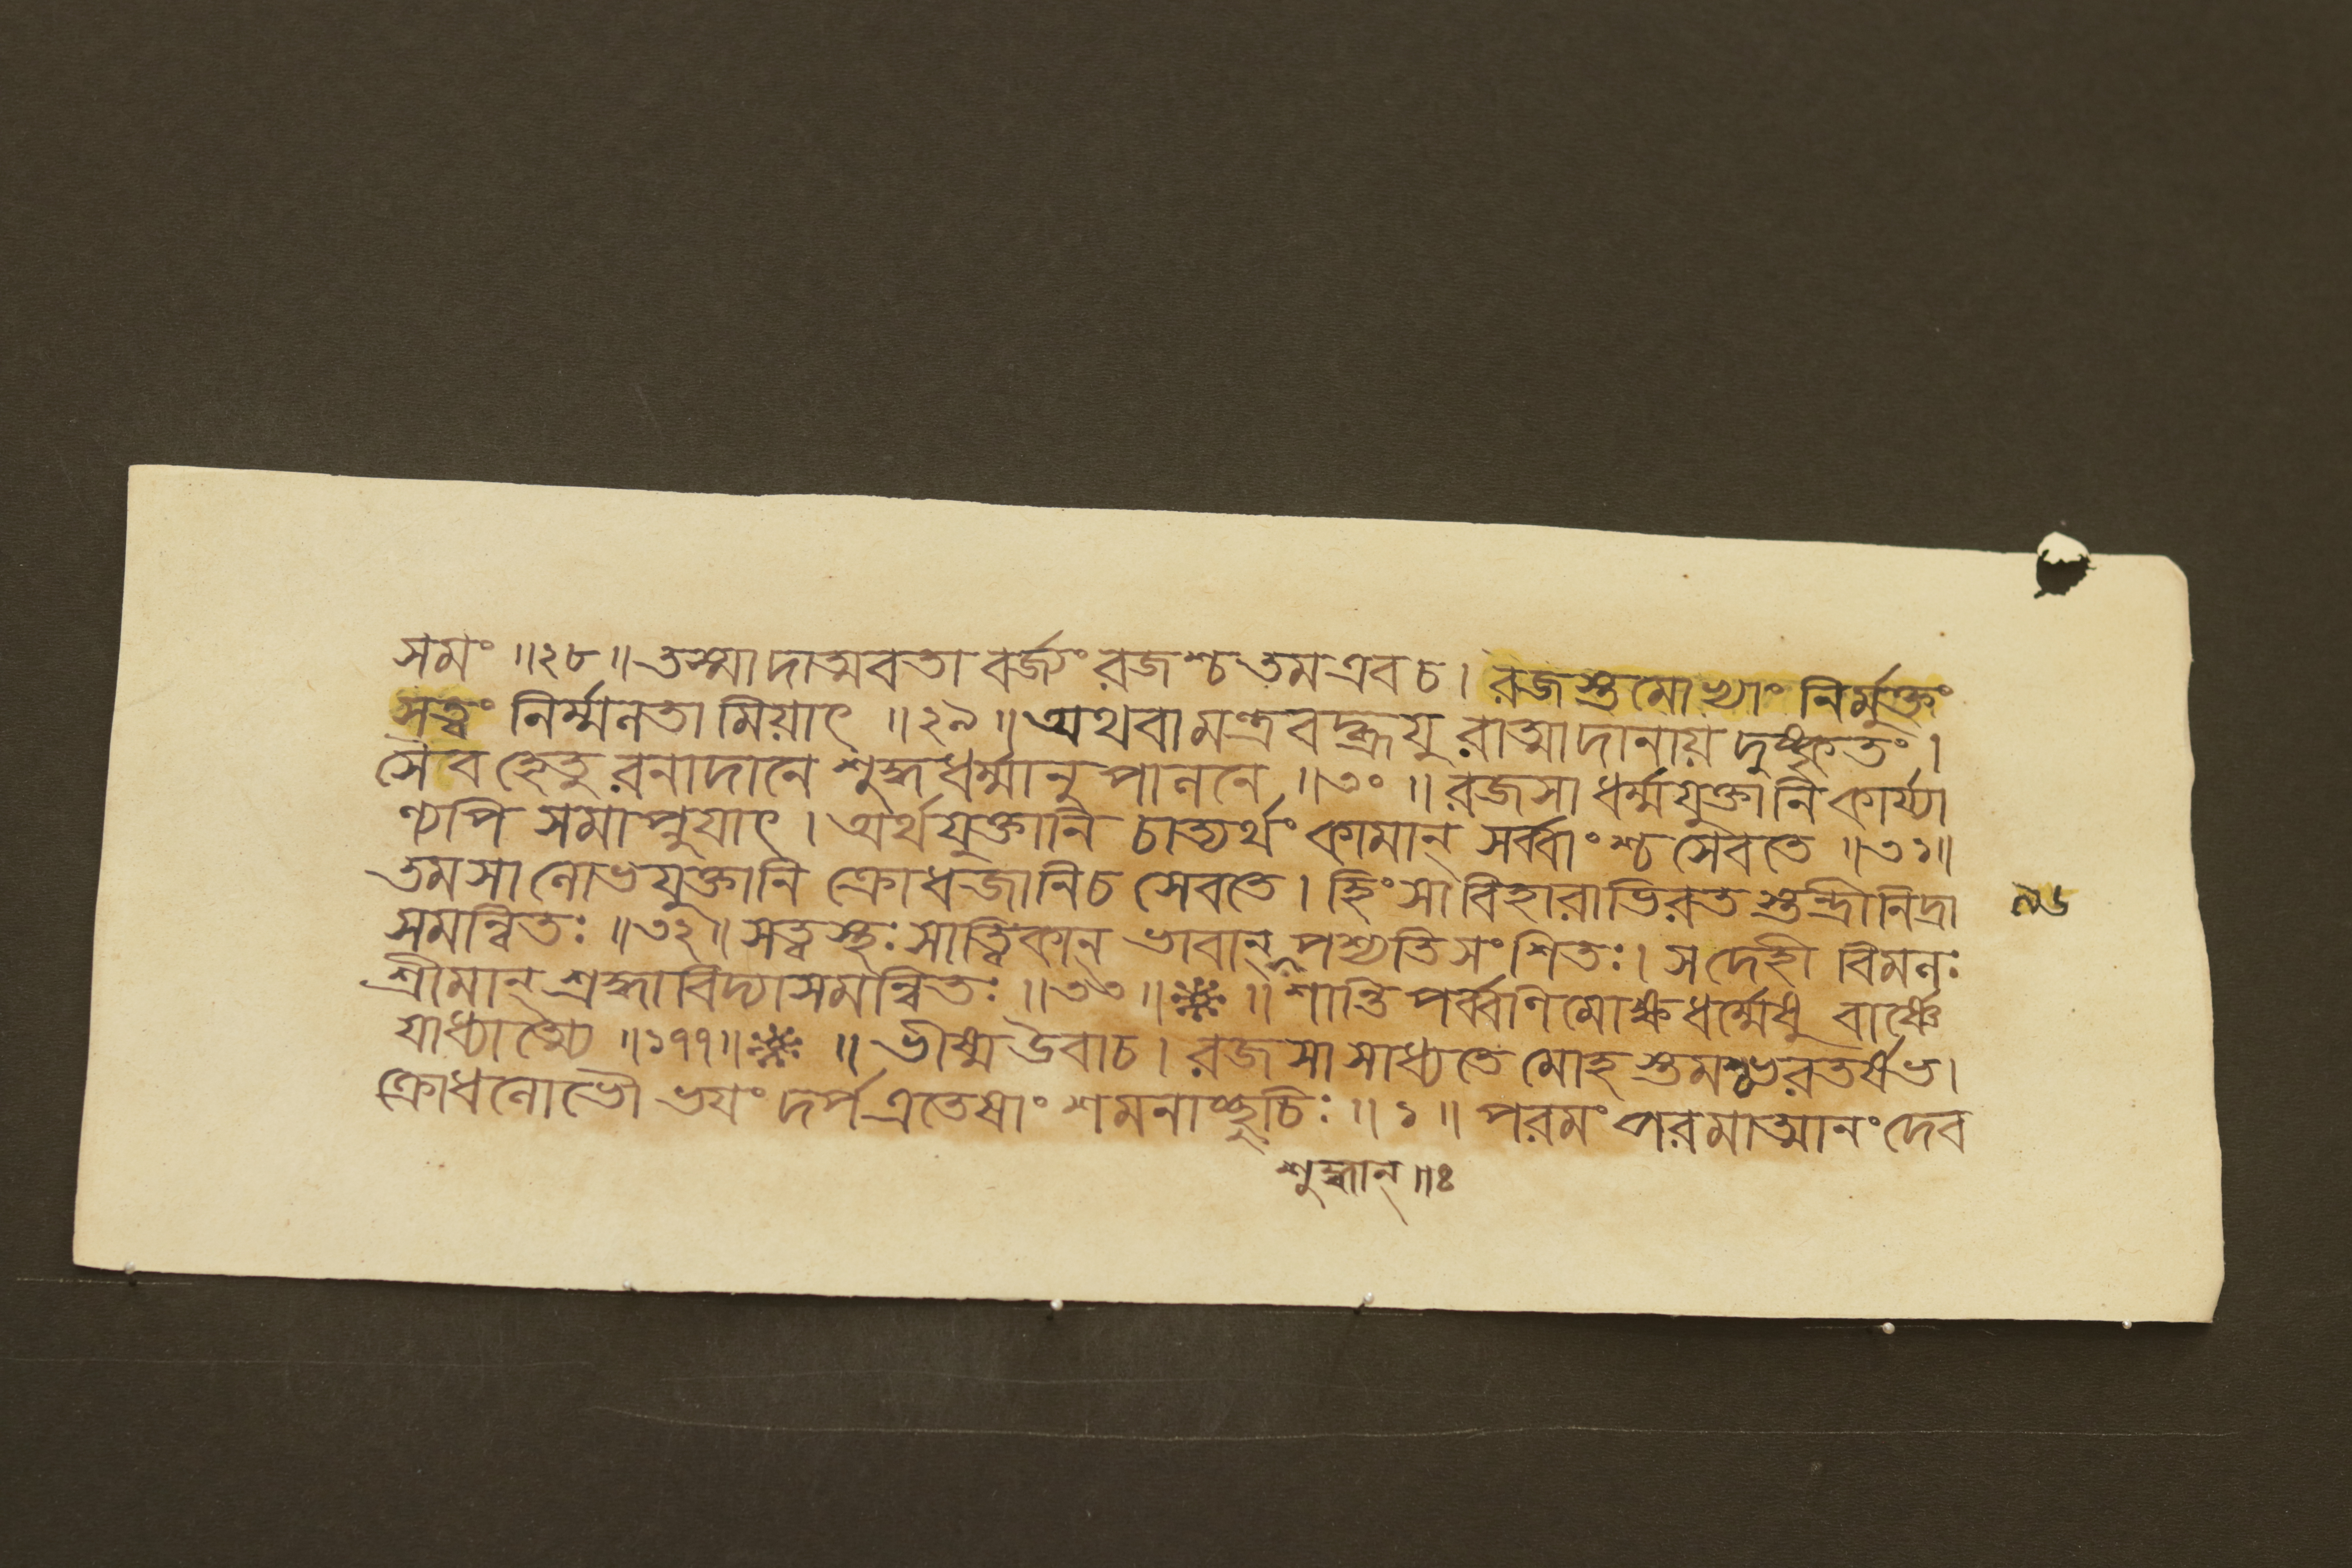 সমং ॥২৮॥ তস্মাদাত্মবতা বর্জ্যং রজশ্চ তম এব চ। রজস্তমোভ্যাং নির্মুক্তং
সত্ত্বং নির্ম্মলতামিয়াৎ ॥২৯॥ অথবা মন্ত্রবদ্ব্রূযু রাত্মাদানায় দুষ্কৃতং।
সৈব হেতু রনাদানে শুদ্ধধর্ম্মানুপালনে ॥৩০॥ রজসা ধর্ম্মযুক্তানি কার্য্যা
ণ্যপি সমাপ্নুযাৎ। অর্থযুক্তানি চাত্যর্থং কামান্ সর্ব্বাংশ্চ সেবতে ॥৩১॥
তমসা লোভযুক্তানি ক্রোধজানি চ সেবতে। হিংসাবিহারাভিরত স্তন্দ্রীনিদ্রা
৯৬
সমন্বিতঃ ॥৩২॥ সত্ত্বস্থঃ সাত্ত্বিকান্ ভাবান্ পশ্যতি সংশ্রিতঃ। স দেহী বিমলঃ
শ্রীমান্ শ্রদ্ধাবিদ্যাসমন্বিতঃ ॥৩৩॥ ॥ শান্তিপর্ব্বণি মোক্ষধর্ম্মেষু বার্ষ্ণে
যাধ্যাত্ম্যে ॥১৭৭॥ ॥ ভীষ্ম উবাচ। রজসা সাধ্যতে মোহ স্তমশ্চ ভরতর্ষভ।
ক্রোধলোভৌ ভযং দর্প এতেষাং শমনাচ্ছুচিঃ ॥১॥ পরমং পরমাত্মানং দেব
শুদ্ধান্ ॥ঃ